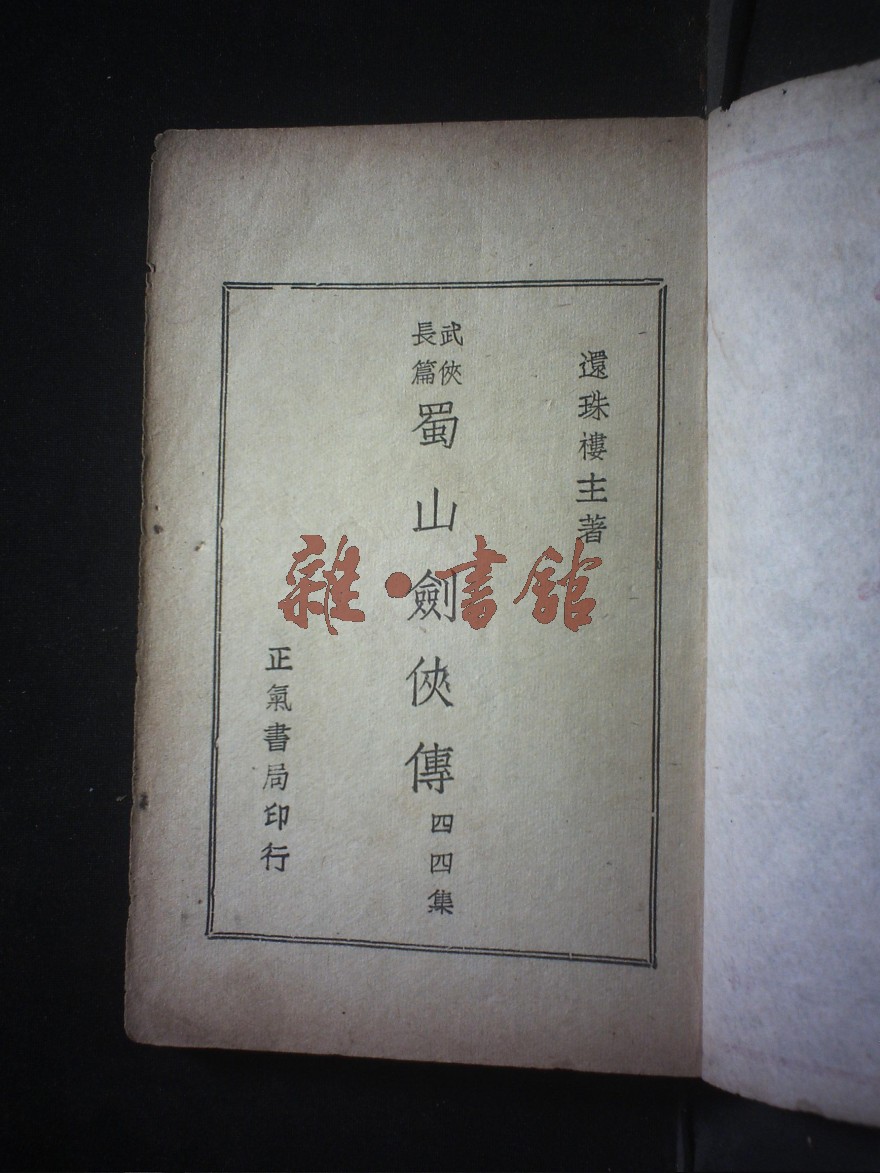 還珠樓主著
武俠
長篇
蜀山劍俠傳
四四集
正氣書局印行
雜·書館